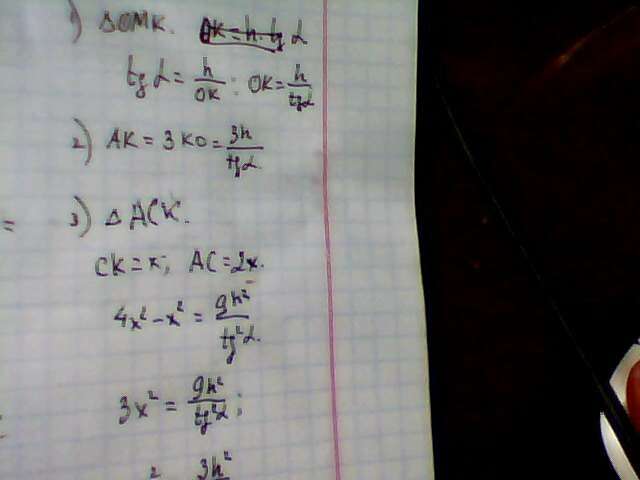 1) ΔOMK.
tg α = h/OK ; OK = h/tg α
2) AK = 3 KO = 3h/tg α
= 3) Δ ACK.
CK = x; AC = 2x.
4x² - x² = 9h²/tg² α.
3x² = 9h²/tg² α;
² 3h²